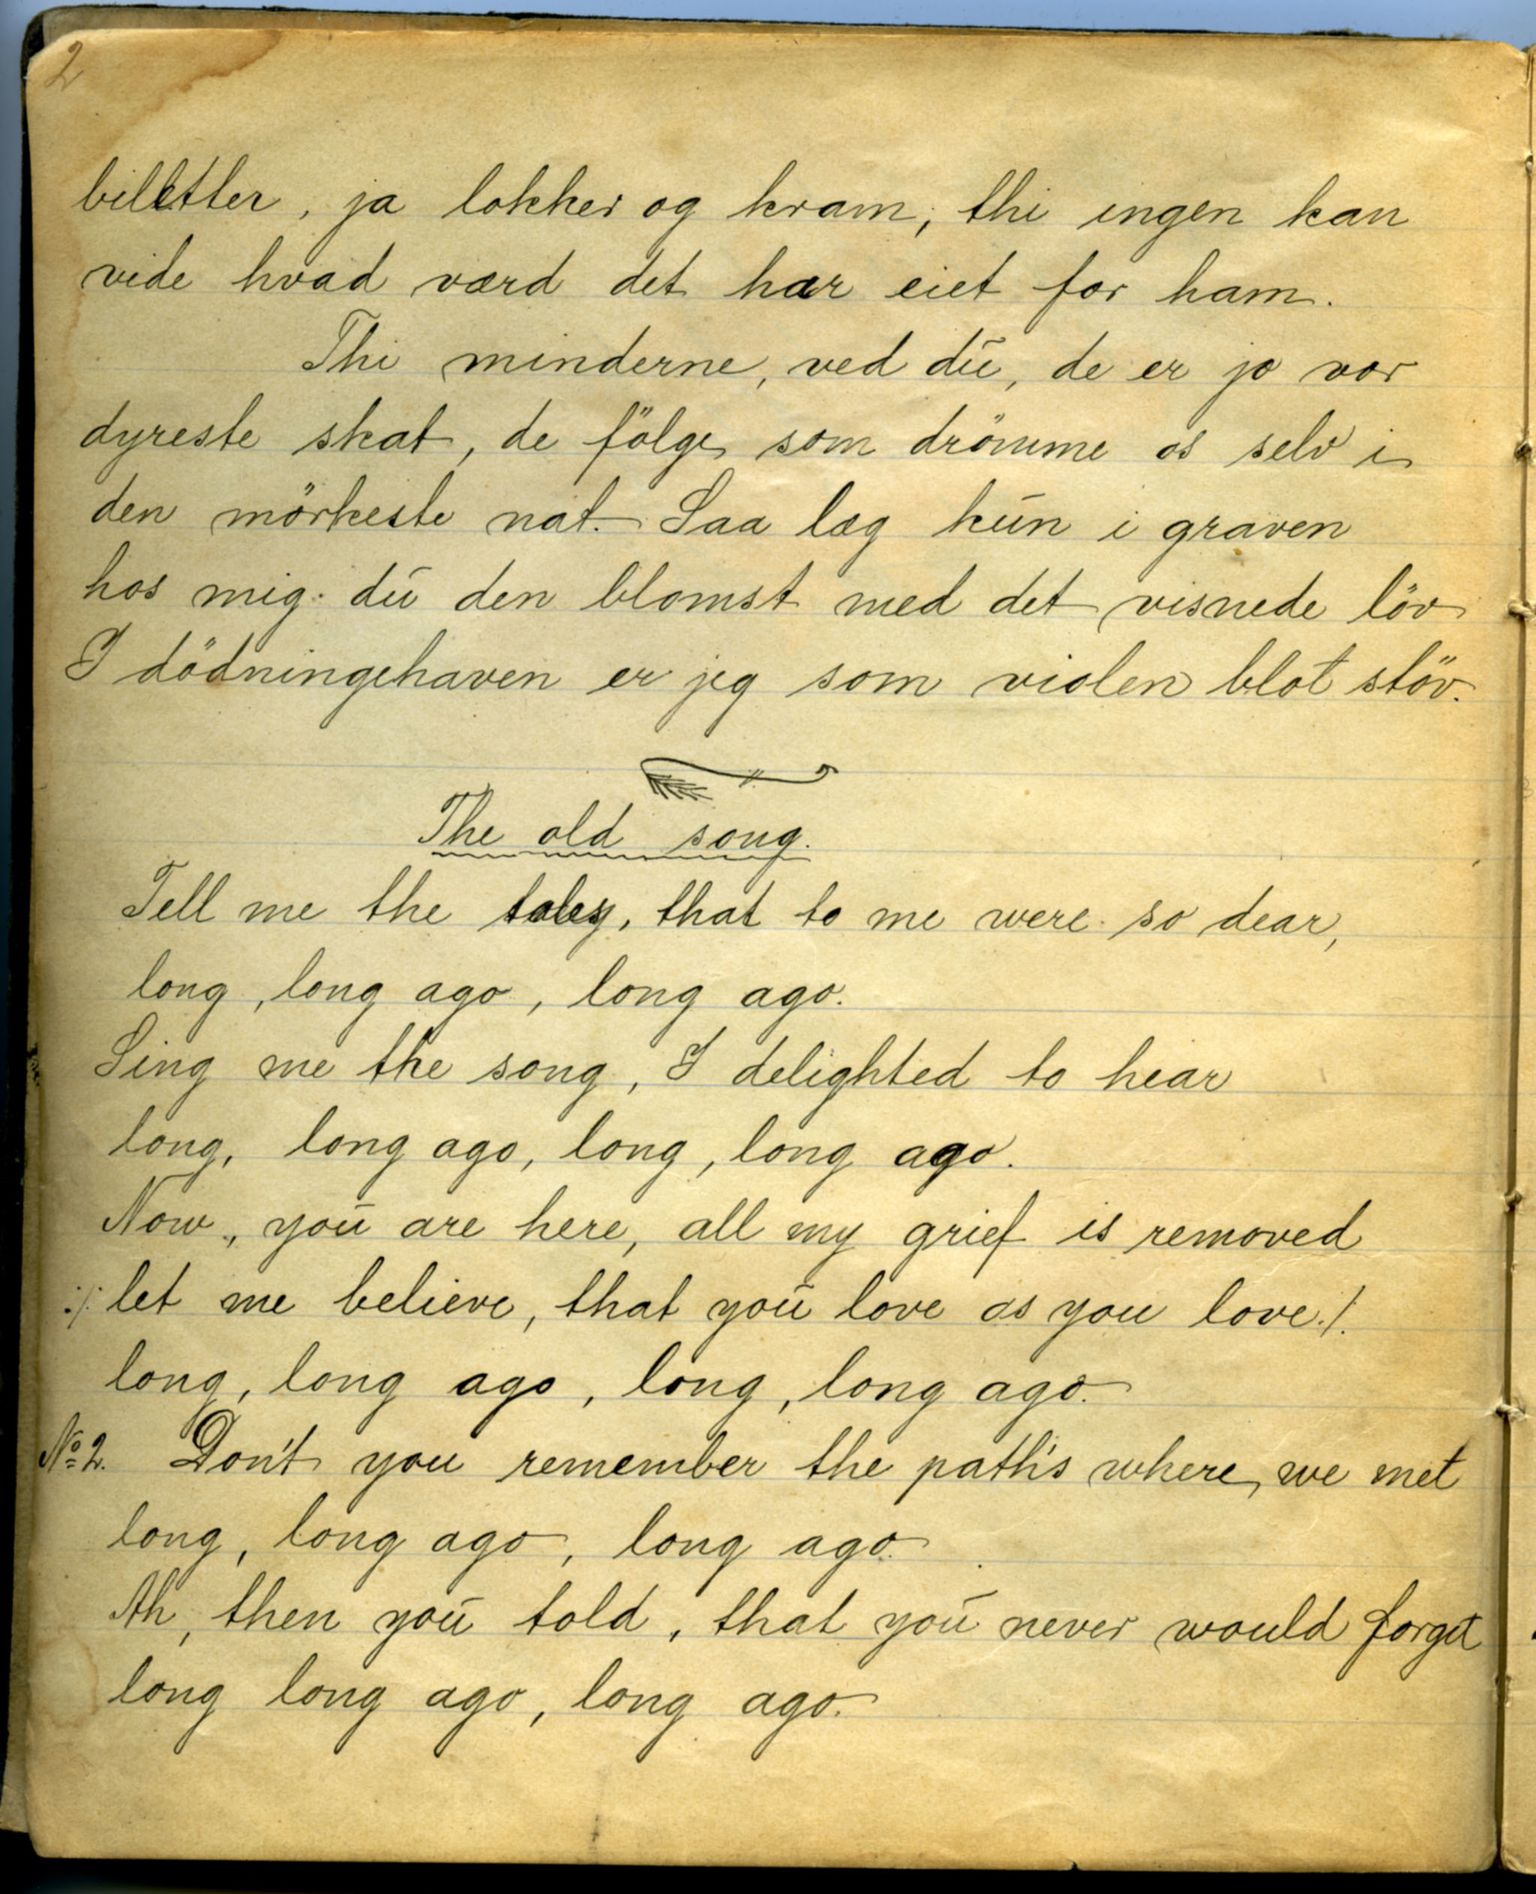 2
billetter, ja lokker og kram, thi ingen kan
vide hvad værd det har eiet for ham.
Thi minderne, ved dū, de er jo vor
dyreste skat, de fölge som drömme os selv i
den mörkeste nat. Saa læg kūn i graven
hos mig dū den blomst med det visnede löv
I dödningehaven er jeg som violen blot stöv.
The old song.
Tell me the tales, that to me were so dear,
long, long ago, long ago.
Sing me the song, I delighted to hear
long, long ago, long, long ago.
Now, yoū are here, all my grief is removed
:/: let me believe, that yoū love as you love ./.
long, long ago, long, long ago.
No 2. Don't you remember the path's where, we met
long, long ago, long ago.
Ah, then yoū told, that yoū never would forget
long long ago, long ago.